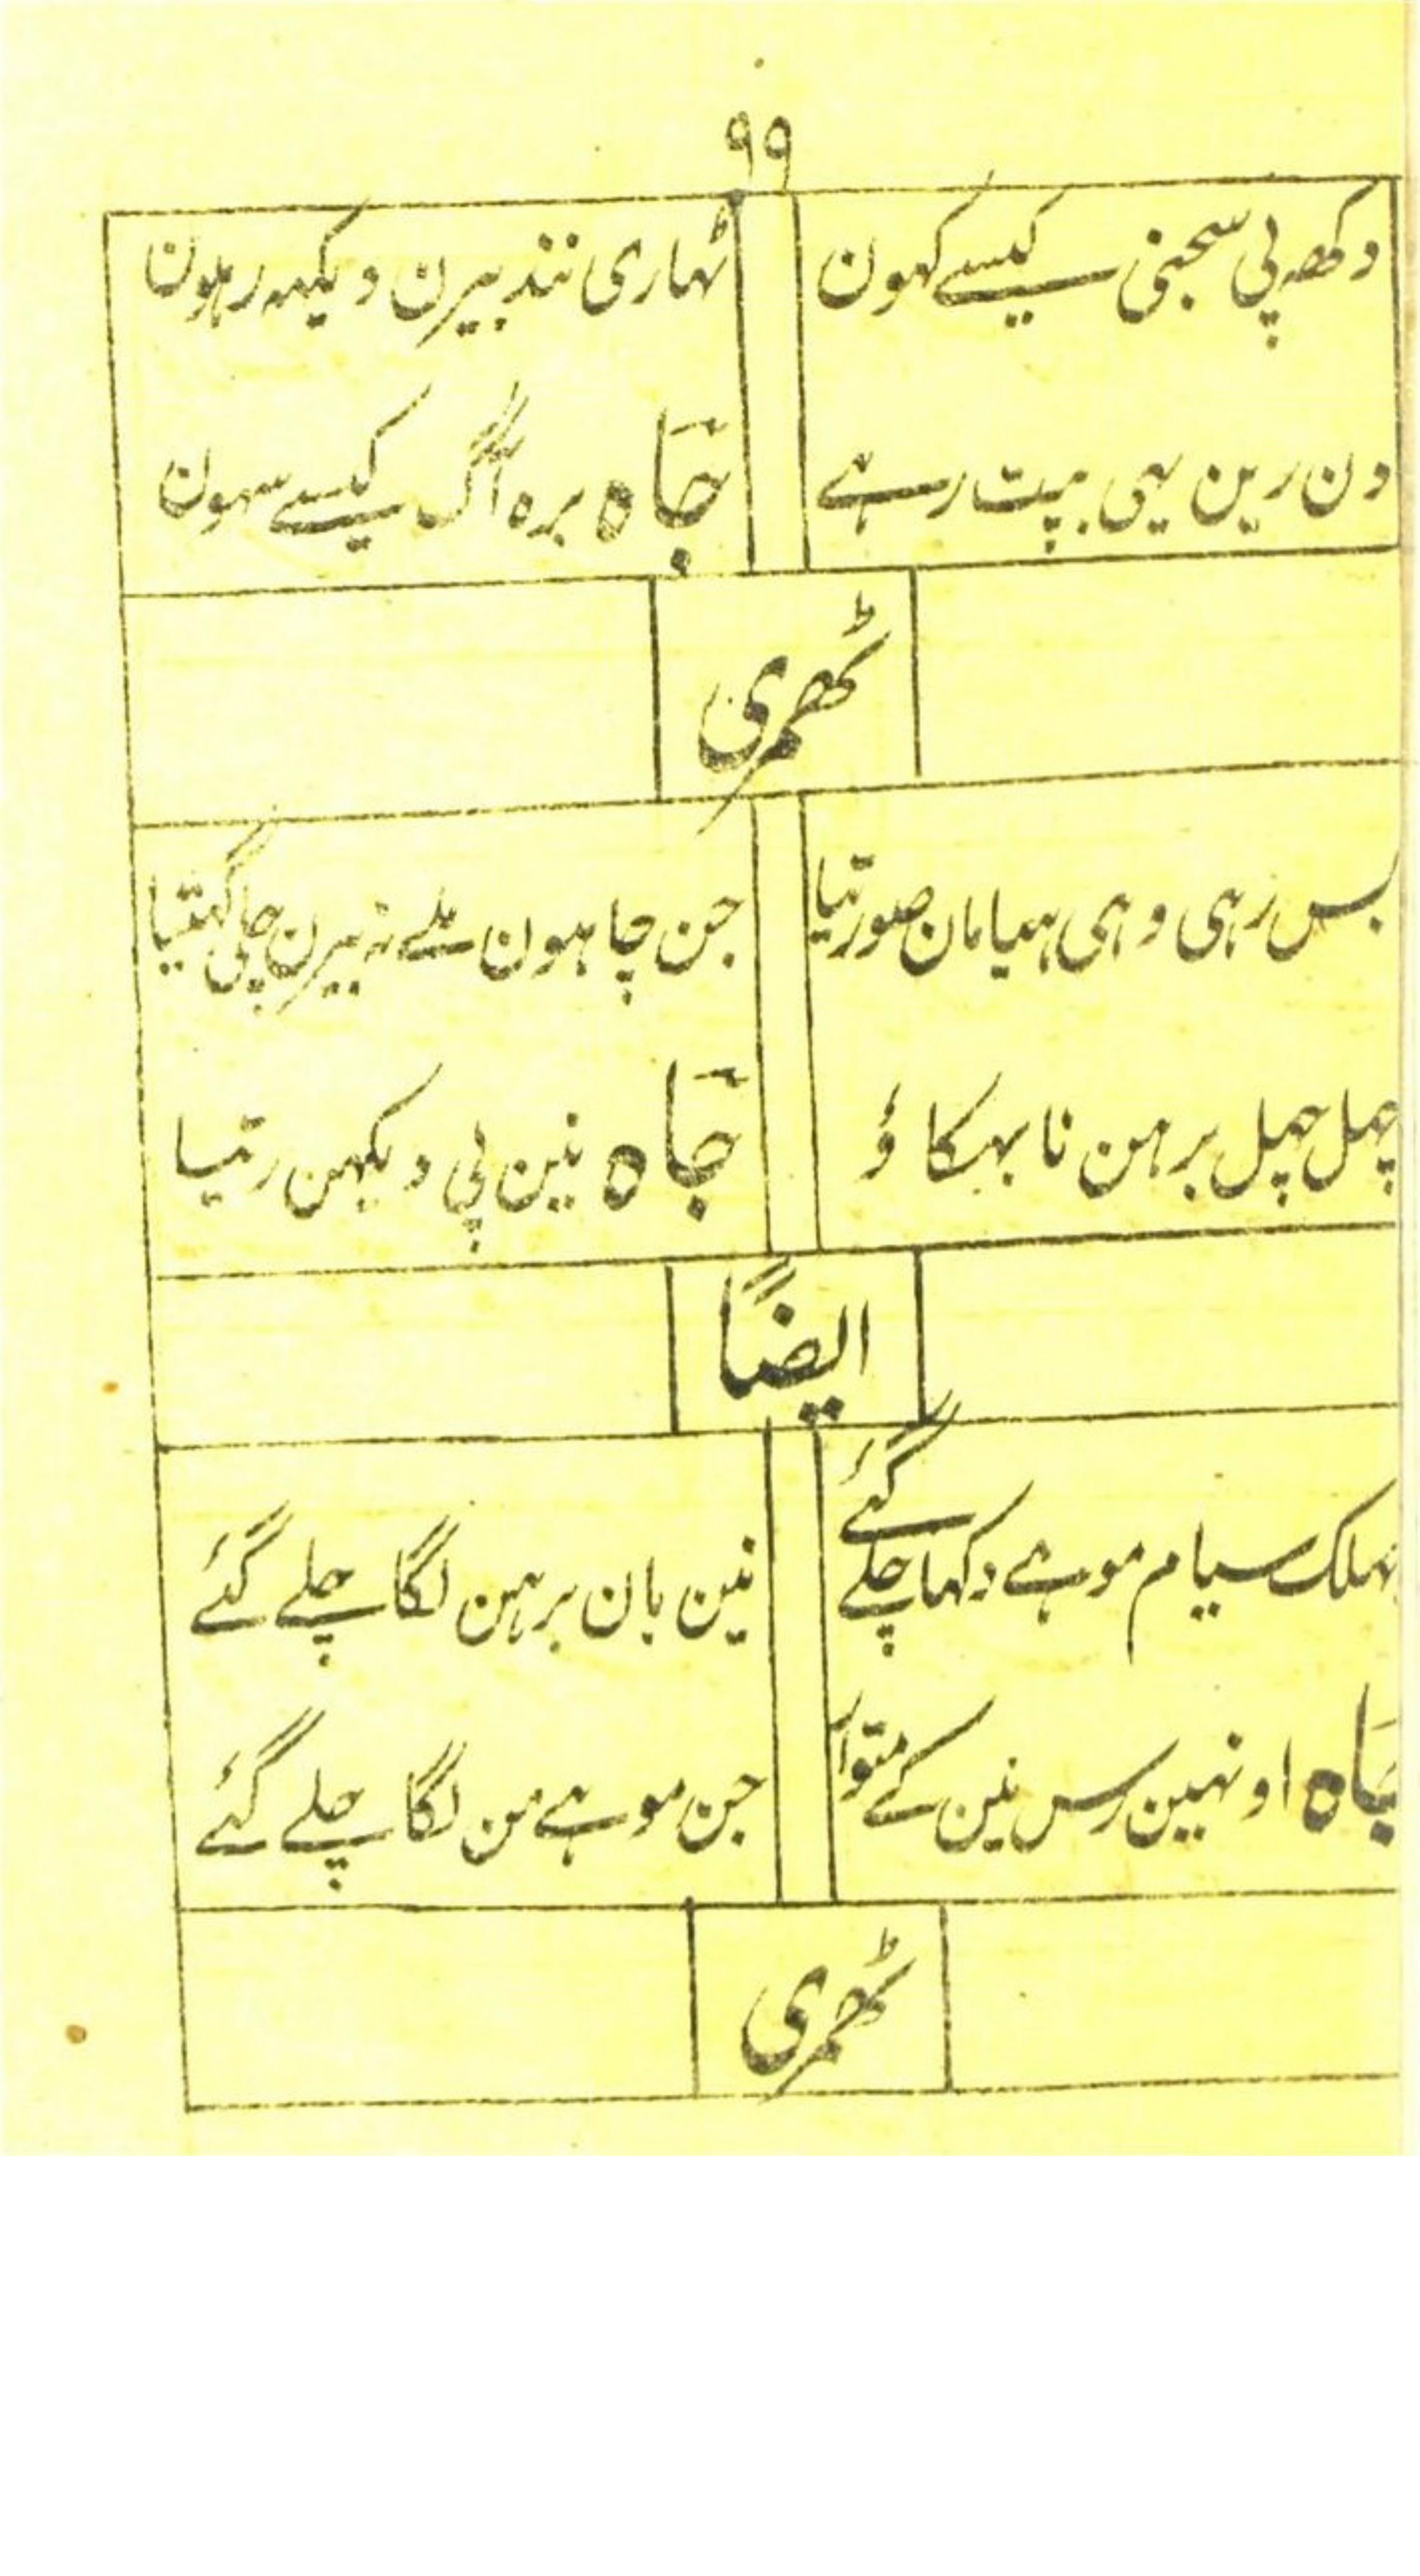 ۹۹
دکھ پی سجنی کیسے کہون ٹھاری نند بیرن دیکہہ رہلون
دن رین یہی بپت رہے جاہ برہ آگ کیسے سہون
ٹھمری
بس رہی وہی ہیامان صورتیا جن چاہون ملے نہ بیرن چلی گہتیا
چہل چہل برہن نا بہکاؤ جاہ نین پی دیکہن رتیا
ایضاً
جہلک سیام موہے دکہا چلے گئے نین بان برہن لگا چلے گئے
جاہ اونہین رس نین کے متوار جن موہے من لگا چلے گئے
ٹھمری